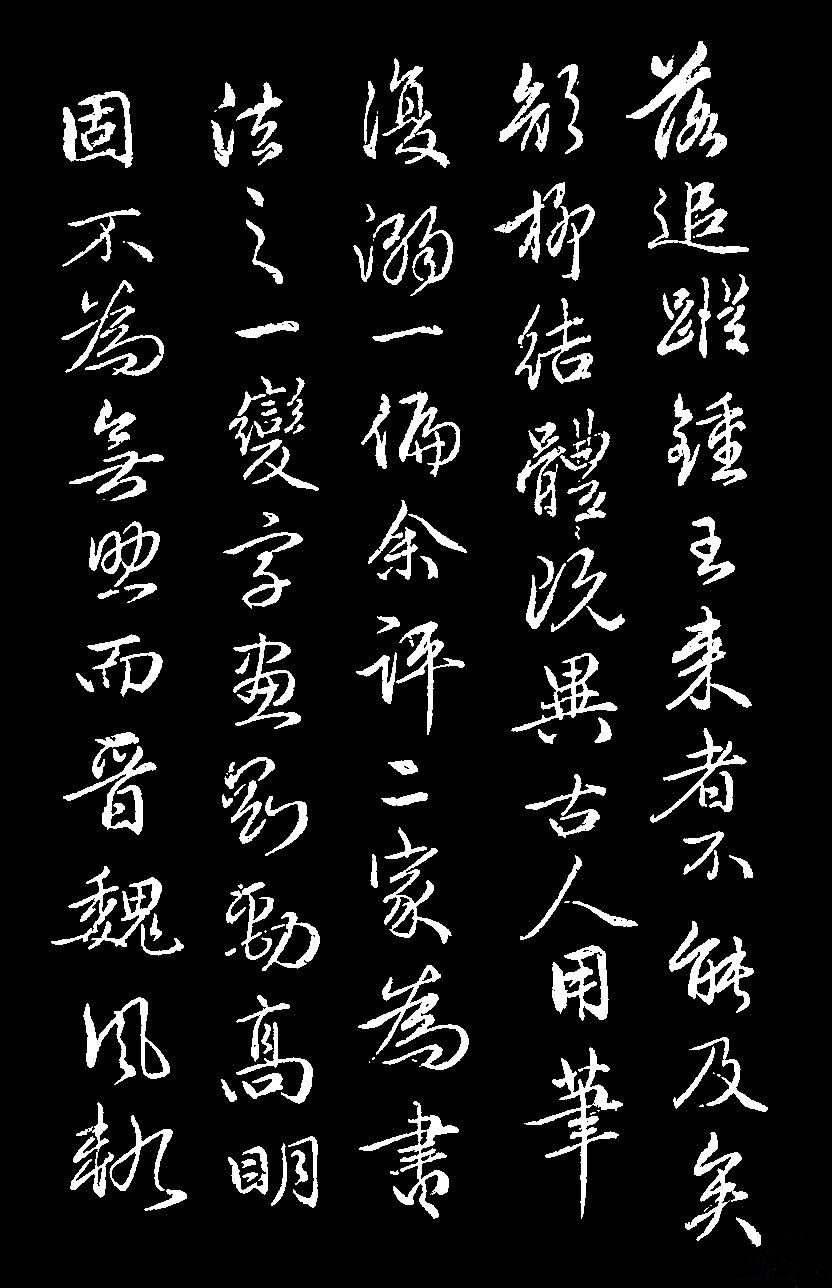 落追蹤鍾王来者不能及矣
顔柳結體既異古人用筆
復溺一偏余評二家為書
法之一變字畫剛勁高明
固不為無然而晋魏風軌